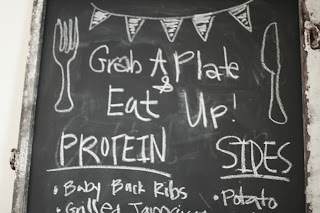 Grab A Plate
&
Eat Up!
PROTEIN
SIDES
• Baby Back Ribs
• Potato
• Grilled